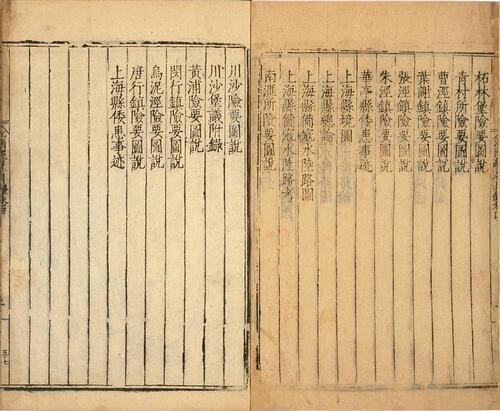 柘林堡險要圖說
青村所險要圖說
曹涇鎮險要圖說
葉謝鎮險要圖說
張涇鎮險要圖說
朱涇鎮險要圖說
華亭縣倭患事迹
上海縣境圖
上海縣總論
上海縣備寇水陸路圖
上海縣備寇水陸路考
南滙所險要圖說
川沙險要圖說
川沙堡議附錄
黃浦險要圖說
閔行鎮險要圖說
烏泥涇險要圖說
唐行鎮險要圖說
上海縣倭患事迹